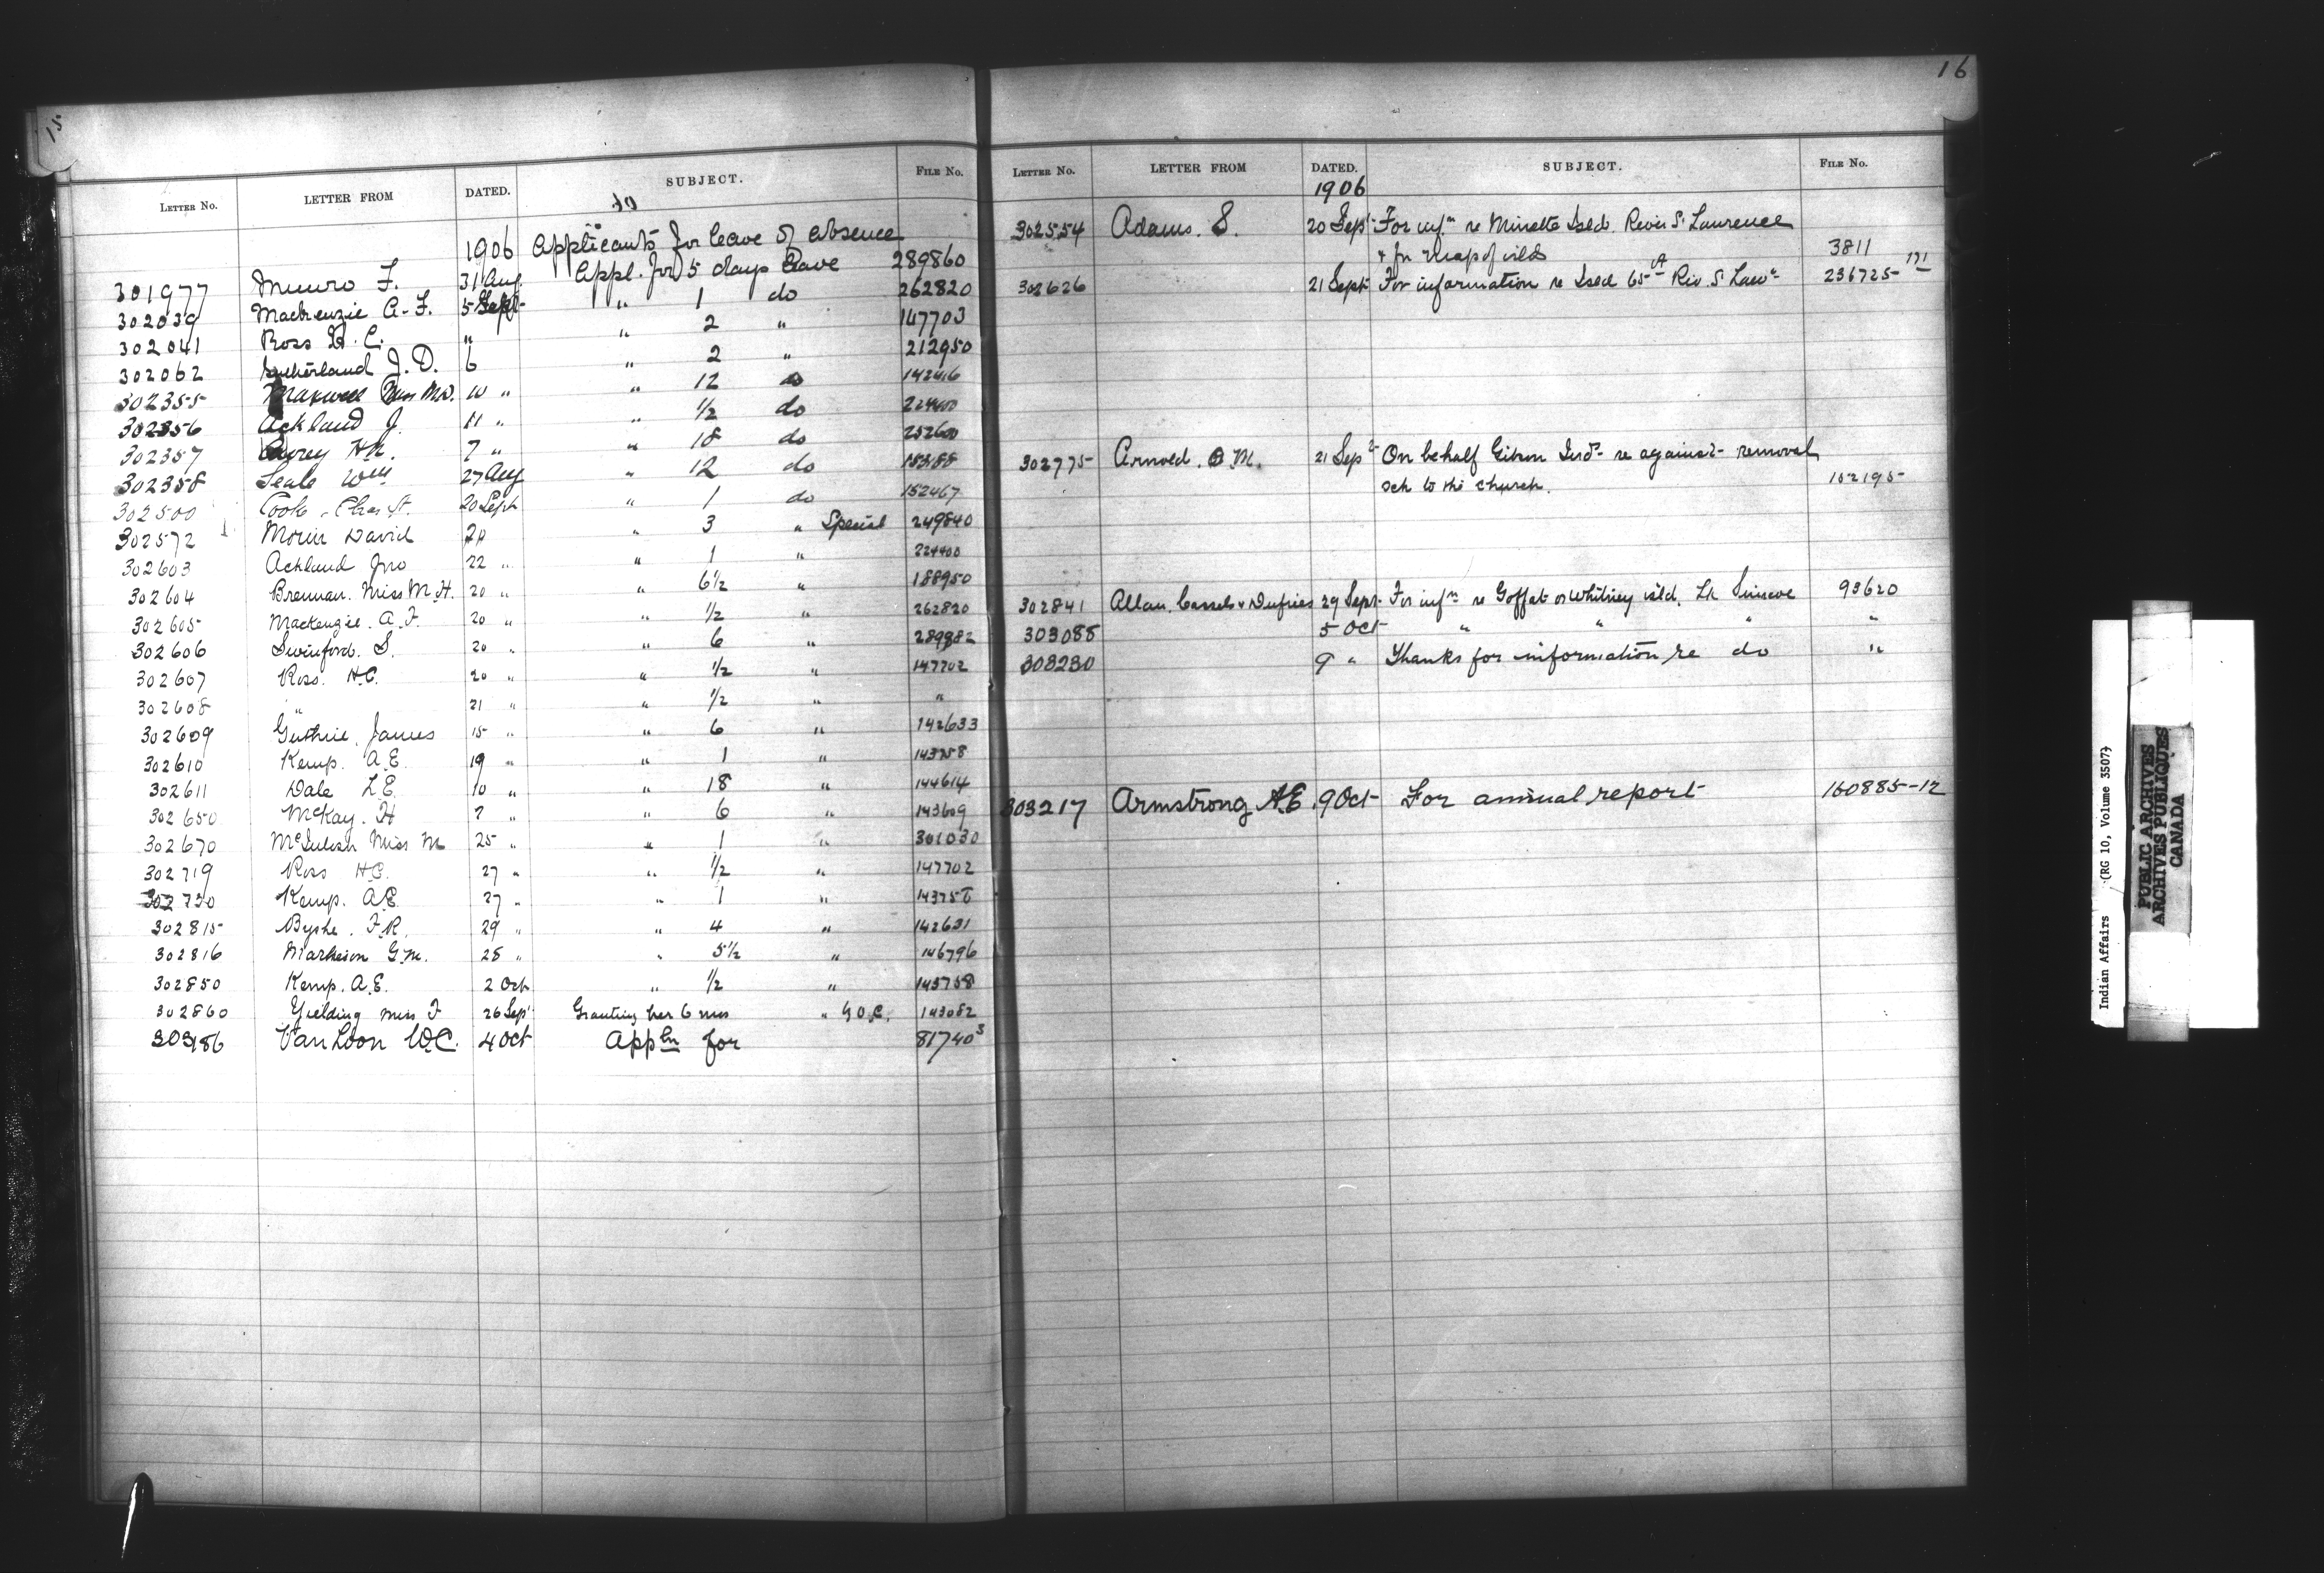 15
LETTER NO. LETTER FROM DATED. SUBJECT. FILE NO.
1906 Applicants for leave of absence
301977 Munro F. 31 Aug. Appl. for 5 days leave 289860
302039 Mackenzie A. F. 5 Sept " 1 do 262820
302041 Ross H. C. " " 2 " 147703
302062 Sutherland J. D. 6 " 2 " 212950
302355 Maxwell Miss M.D. 10 " " 12 do 142416
302356 Ackland J. 11 " " 1/2 do 224400
302357 7 " " 18 do 252600
302358 Seale Wm 27 Aug " 12 do
302500 Cook. Chas A. 20 Sept " 1 do 152467
302572 Morin David 20 " 3 " Special 249840
302603 Ackland Jno 22 " " 1 " 224400
302604 Brennan. Miss M.H. 20 " " 6 1/2 " 188950
302605 Mackenzie. A.F. 20 " " 1/2 " 262820
302606 Swinford. S. 20 " " 6 " 289882
302607 Ross. H.C. 20 " " 1/2 " 147702
302608 " 21 " " 1/2 " "
302609 Guthrie, James 15 " " 6 " 142633
302610 Kemp. A.E. 19 " " 1 " 143758
302611 Dale L.E. 10 " " 18 " 144614
302650 McKay. H 7 " " 6 " 143609
302670 McIntosh Miss M 25 " " 1 " 301030
302719 Ross H.C. 27 " " 1/2 " 147702
302730 Kemp. A.E. 27 " " 1 " 143758
302815 Byshe. F.R. 29 " " 4 " 142631
302816 Matheson G.M. 28 " " 5 1/2 " 146796
302850 Kemp. A.E. 2 Oct " 1/2 " 143758
302860 Yielding Miss F 26 Sept Granting her 6 mos " 143082
303186 Van Loon W.C. 4 Oct Appln for 81740 3
16
LETTER NO. LETTER FROM DATED. SUBJECT. FILE NO.
1906
302554 Adams. S. 20 Sept For infn re Minette Isld. River St Lawrence
& for map of islds 3811
302626 21 Sept For information re Isld 65 A Riv. St Lawce 236725-171
302775 Arnold. O M. 21 Sept On behalf Gibson Inds re against removal
sch to the church. 152195
302841 Allan. Cassels & Dufries 29 Sept. For infn re Goffat or Whitney isld. Lk Simcoe 93620
303085 5 Oct " " " "
303230 9 " Thanks for information re do "
303217 Armstrong A.E. 9 Oct For annual report 160885-12
Indian Affairs (RG 10, Volume 3507)
PUBLIC ARCHIVES
ARCHIVES PUBLIQUES
CANADA